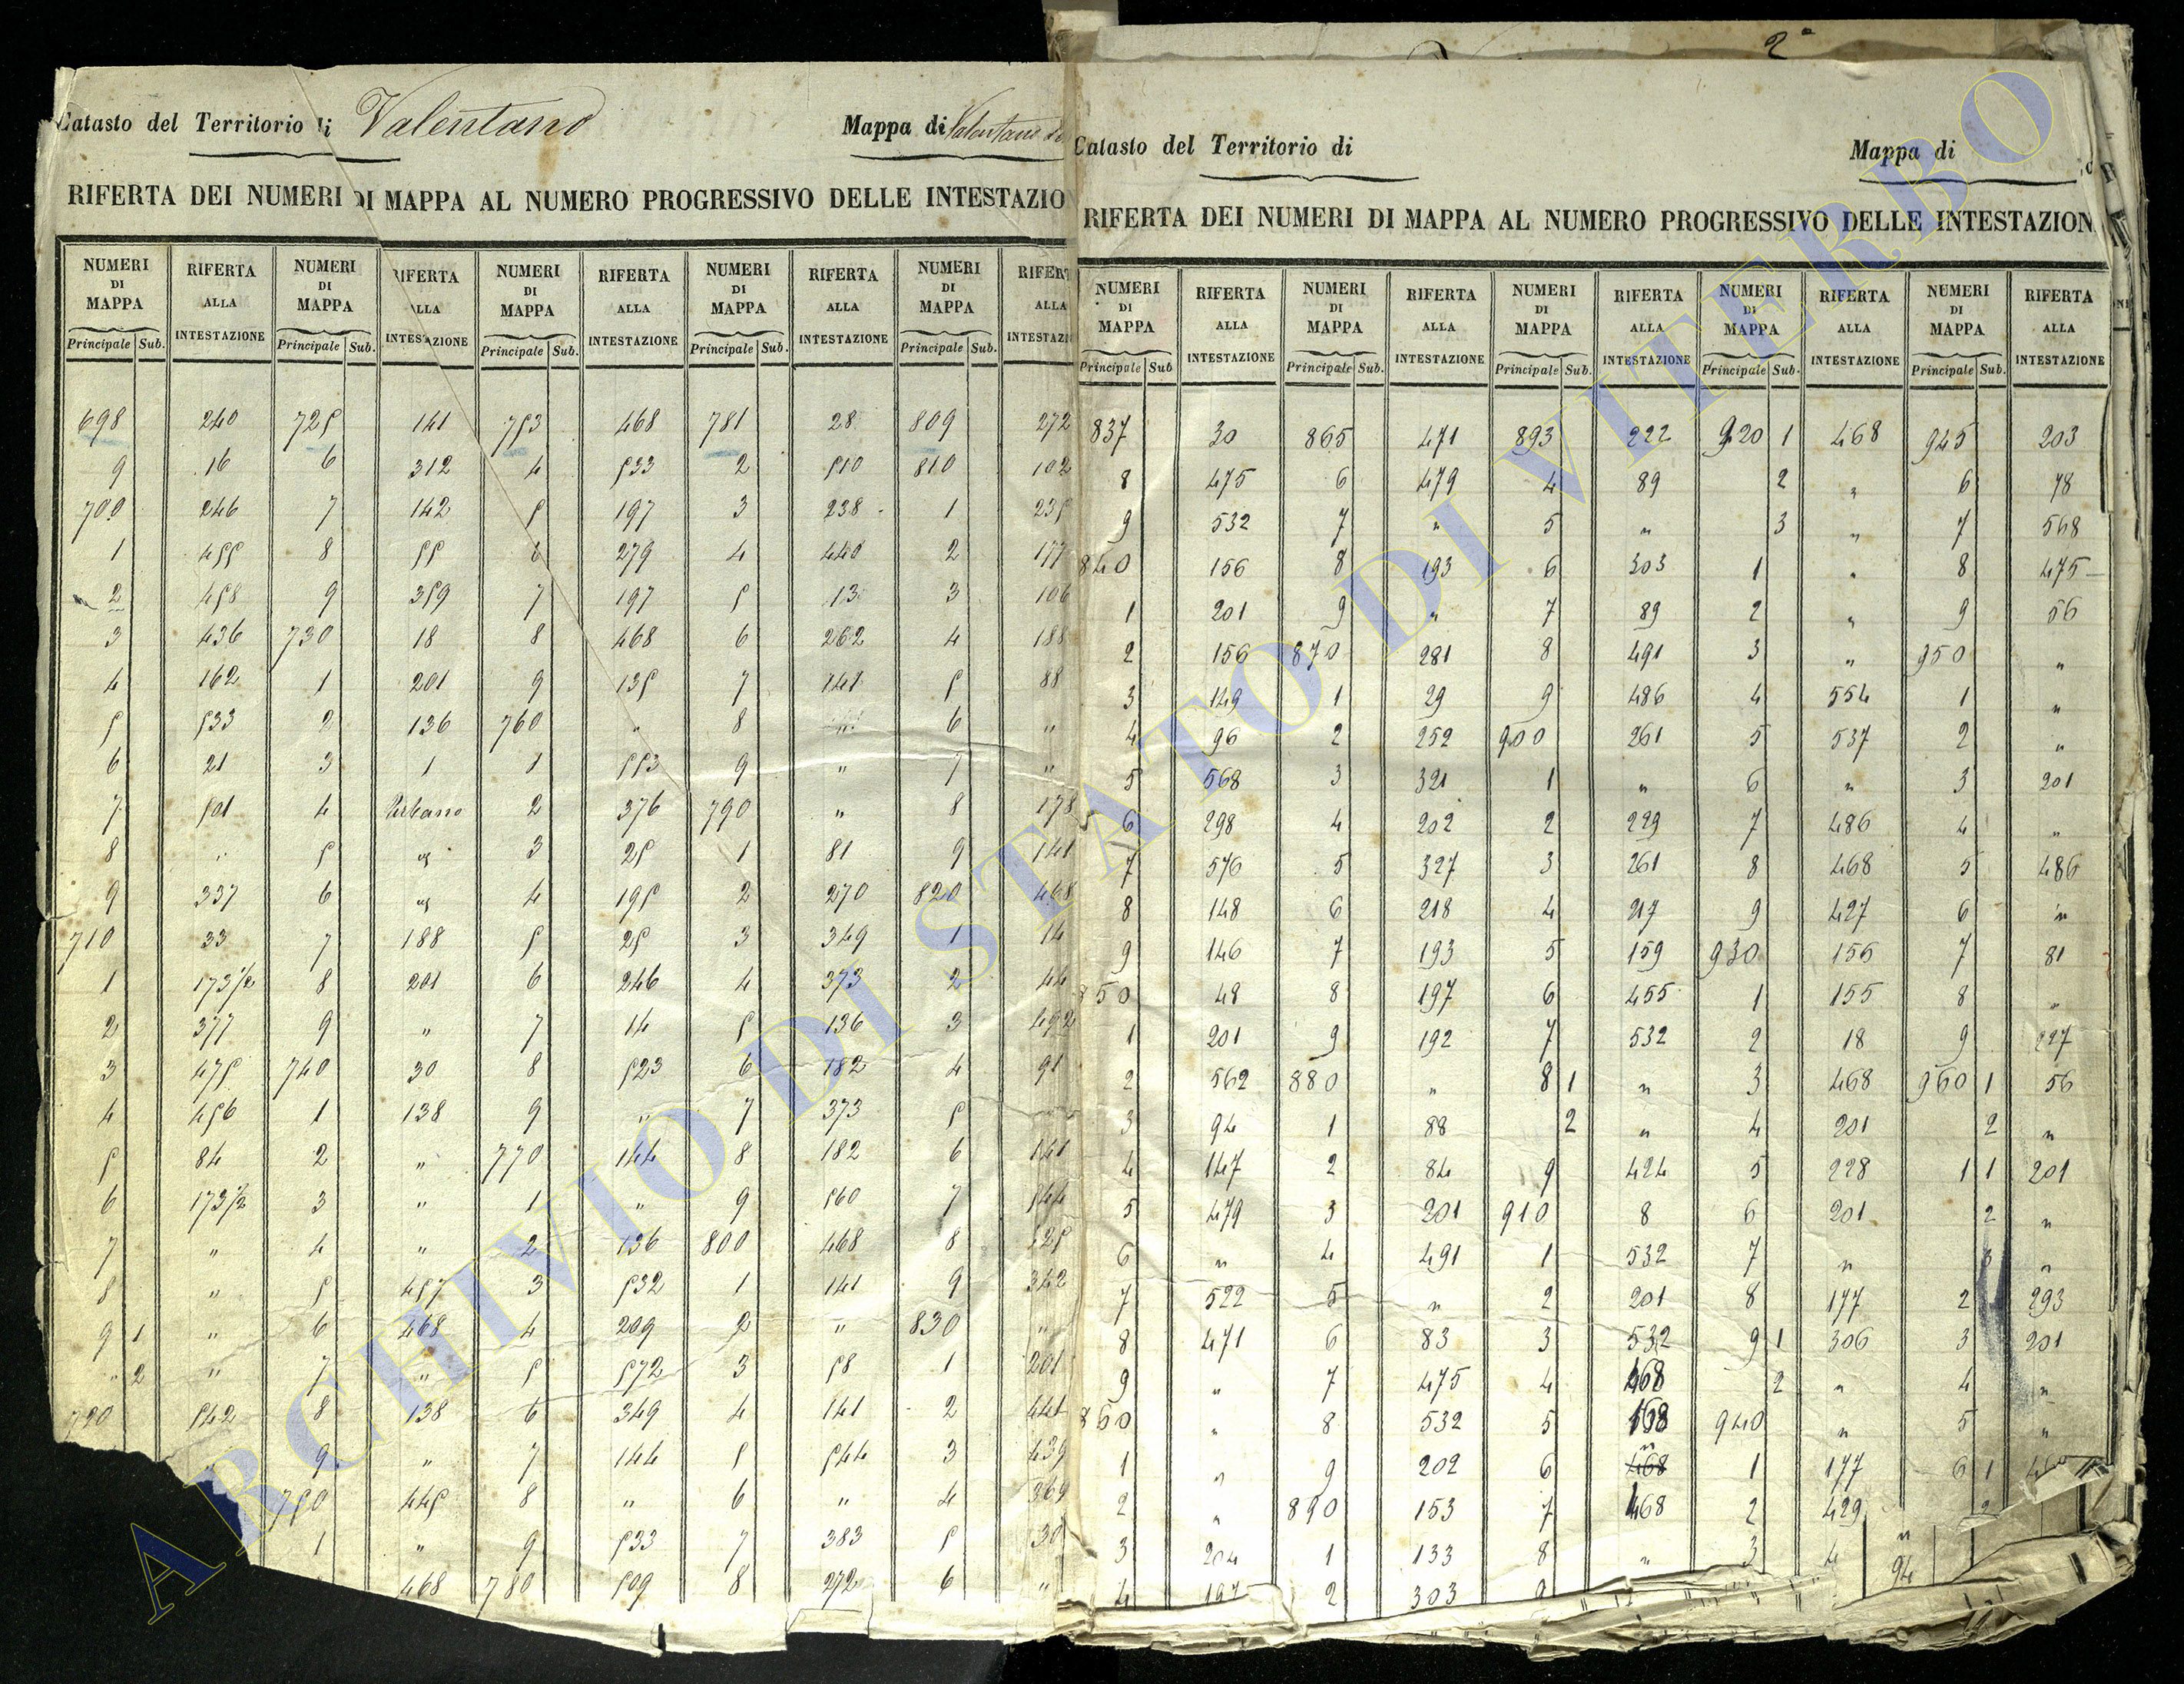 Catasto del Territorio di Valentano Mappa di Valentano
RIFERTA DEI NUMERI DI MAPPA AL NUMERO PROGRESSIVO DELLE INTESTAZIO
NUMERI DI MAPPA RIFERTA ALLA INTESTAZIONE NUMERI DI MAPPA RIFERTA ALLA INTESTAZIONE NUMERI DI MAPPA RIFERTA ALLA INTESTAZIONE NUMERI DI MAPPA RIFERTA ALLA INTESTAZIONE NUMERI DI MAPPA RIFERT ALLA INTESTAZI
Principale Sub. Principale Sub. Principale Sub. Principale Sub. Principale Sub.
698 240 725 141 753 468 781 28 809 272
9 16 6 312 4 533 2 510 810 102
700 246 7 142 5 197 3 238 1 235
1 455 8 55 6 279 4 440 2 177
2 458 9 359 7 197 5 13 3 106
3 436 730 18 8 468 6 262 4 188
4 162 1 201 9 135 7 141 5 88
5 533 2 136 760 " 8 " 6 "
6 21 3 1 1 553 9 " 7 "
7 501 4 Urbano 2 376 790 " 8 178
8 " 5 " 3 25 1 81 9 141
9 337 6 " 4 195 2 270 820 468
710 33 7 188 5 25 3 349 1 14
1 173 1/2 8 201 6 246 4 373 2 44
2 377 9 " 7 14 5 136 3 492
3 475 740 30 8 523 6 182 4 91
4 456 1 138 9 " 7 373 5
5 84 2 " 770 144 8 182 6 141
6 173 1/2 3 " 1 " 9 560 7 544
7 " 4 " 2 136 800 468 8 125
8 " 5 457 3 532 1 141 9 342
9 1 " 6 468 4 209 2 " 830 "
" 2 " 7 " 5 572 3 58 1 201
720 542 8 138 6 349 4 141 2 441
" 9 " 7 144 5 544 3 439
750 445 8 " 6 " 4 369
1 " 9 533 7 383 5 30
468 780 509 8 272 6 "
2ª
Catasto del Territorio di Mappa di
RIFERTA DEI NUMERI DI MAPPA AL NUMERO PROGRESSIVO DELLE INTESTAZION
NUMERI DI MAPPA RIFERTA ALLA INTESTAZIONE NUMERI DI MAPPA RIFERTA ALLA INTESTAZIONE NUMERI DI MAPPA RIFERTA ALLA INTESTAZIONE NUMERI DI MAPPA RIFERTA ALLA INTESTAZIONE NUMERI DI MAPPA RIFERTA ALLA INTESTAZIONE
Principale Sub Principale Sub. Principale Sub. Principale Sub. Principale Sub.
837 30 865 471 893 222 920 1 468 945 203
8 475 6 479 4 89 2 " 6 78
9 532 7 " 5 " 3 " 7 568
840 156 8 193 6 303 1 " 8 475
1 201 9 " 7 89 2 " 9 56
2 156 870 281 8 491 3 " 950 "
3 149 1 29 9 486 4 554 1 "
4 96 2 252 900 261 5 537 2 "
5 568 3 321 1 " 6 " 3 201
6 298 4 202 2 229 7 486 4 "
7 576 5 327 3 261 8 468 5 486
8 148 6 218 4 217 9 427 6 "
9 146 7 193 5 159 930 156 7 81
850 48 8 197 6 455 1 155 8 "
1 201 9 192 7 532 2 18 9 227
2 562 880 " 8 1 " 3 468 960 1 56
3 94 1 88 2 " 4 201 2 "
4 147 2 84 9 424 5 228 1 1 201
5 479 3 201 910 8 6 201 2 "
6 " 4 491 1 532 7 " 3 "
7 522 5 " 2 201 8 177 2 293
8 471 6 83 3 532 9 1 306 3 201
9 " 7 475 4 468 2 " 4 "
860 " 8 532 5 168 940 " 5 "
1 " 9 202 6 " 468 1 177 6 1
2 " 890 153 7 468 2 429 2
3 204 1 133 8 " 3 4 "
4 197 2 303 9 94
ARCHIVIO DI STATO DI VITERBO